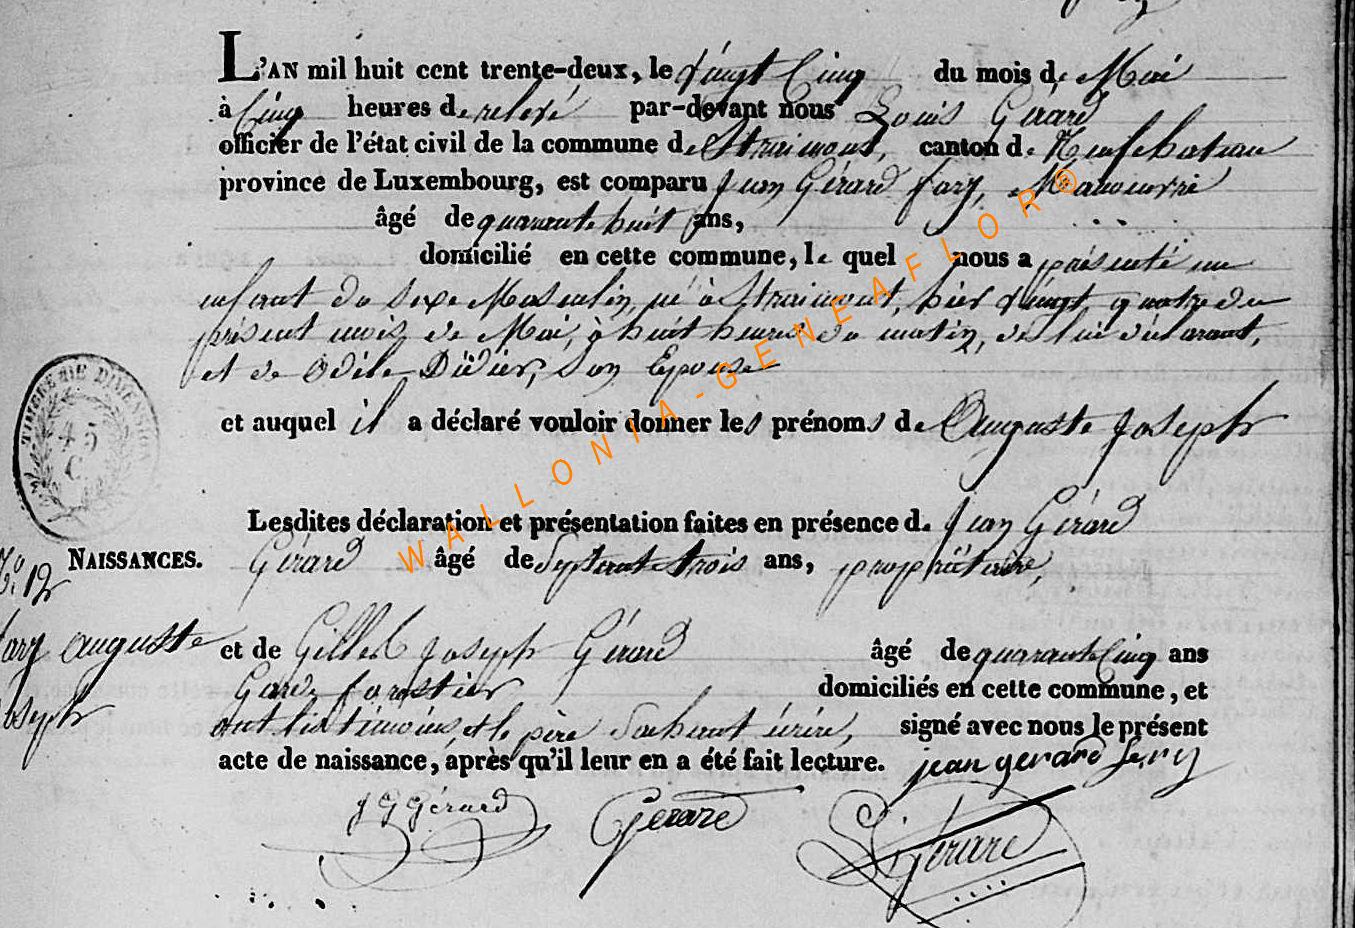 L'AN mil huit cent trente-deux, le vingt Cinq du mois de Mai
à Cinq heures de relevé par-devant nous Louis Gérard
officier de l'état civil de la commune de Straimont, canton de Neufchateau
province de Luxembourg, est comparu Jean Gérard fary, Manoeuvre
âgé de quarante huit ans,
domicilié en cette commune, le quel nous a présenté un
enfant du sexe Masculin, né à Straimont, hier vingt quatre du
présent mois de Mai, à huit heures du matin, de lui déclarant,
et de Odile Didier, Son Epouse
et auquel il a déclaré vouloir donner les prénoms de Auguste Joseph
Lesdites déclaration et présentation faites en présence d. Jean Gérard
Gérard âgé de Septante trois ans, propriétaire,
et de Gilles Joseph Gérard âgé de quarante Cinq ans
Garde forestier domiciliés en cette commune, et
ont les témoins, et le père Sachant écrire, signé avec nous le présent
acte de naissance, après qu'il leur en a été fait lecture. jean gerard fary
J G Gérard Gerard L. Gerard
NAISSANCES.
N° 12
fary auguste
Joseph
TIMBRE DE DIMENSION
45
C
WALLONIA-GENEAFLOR®